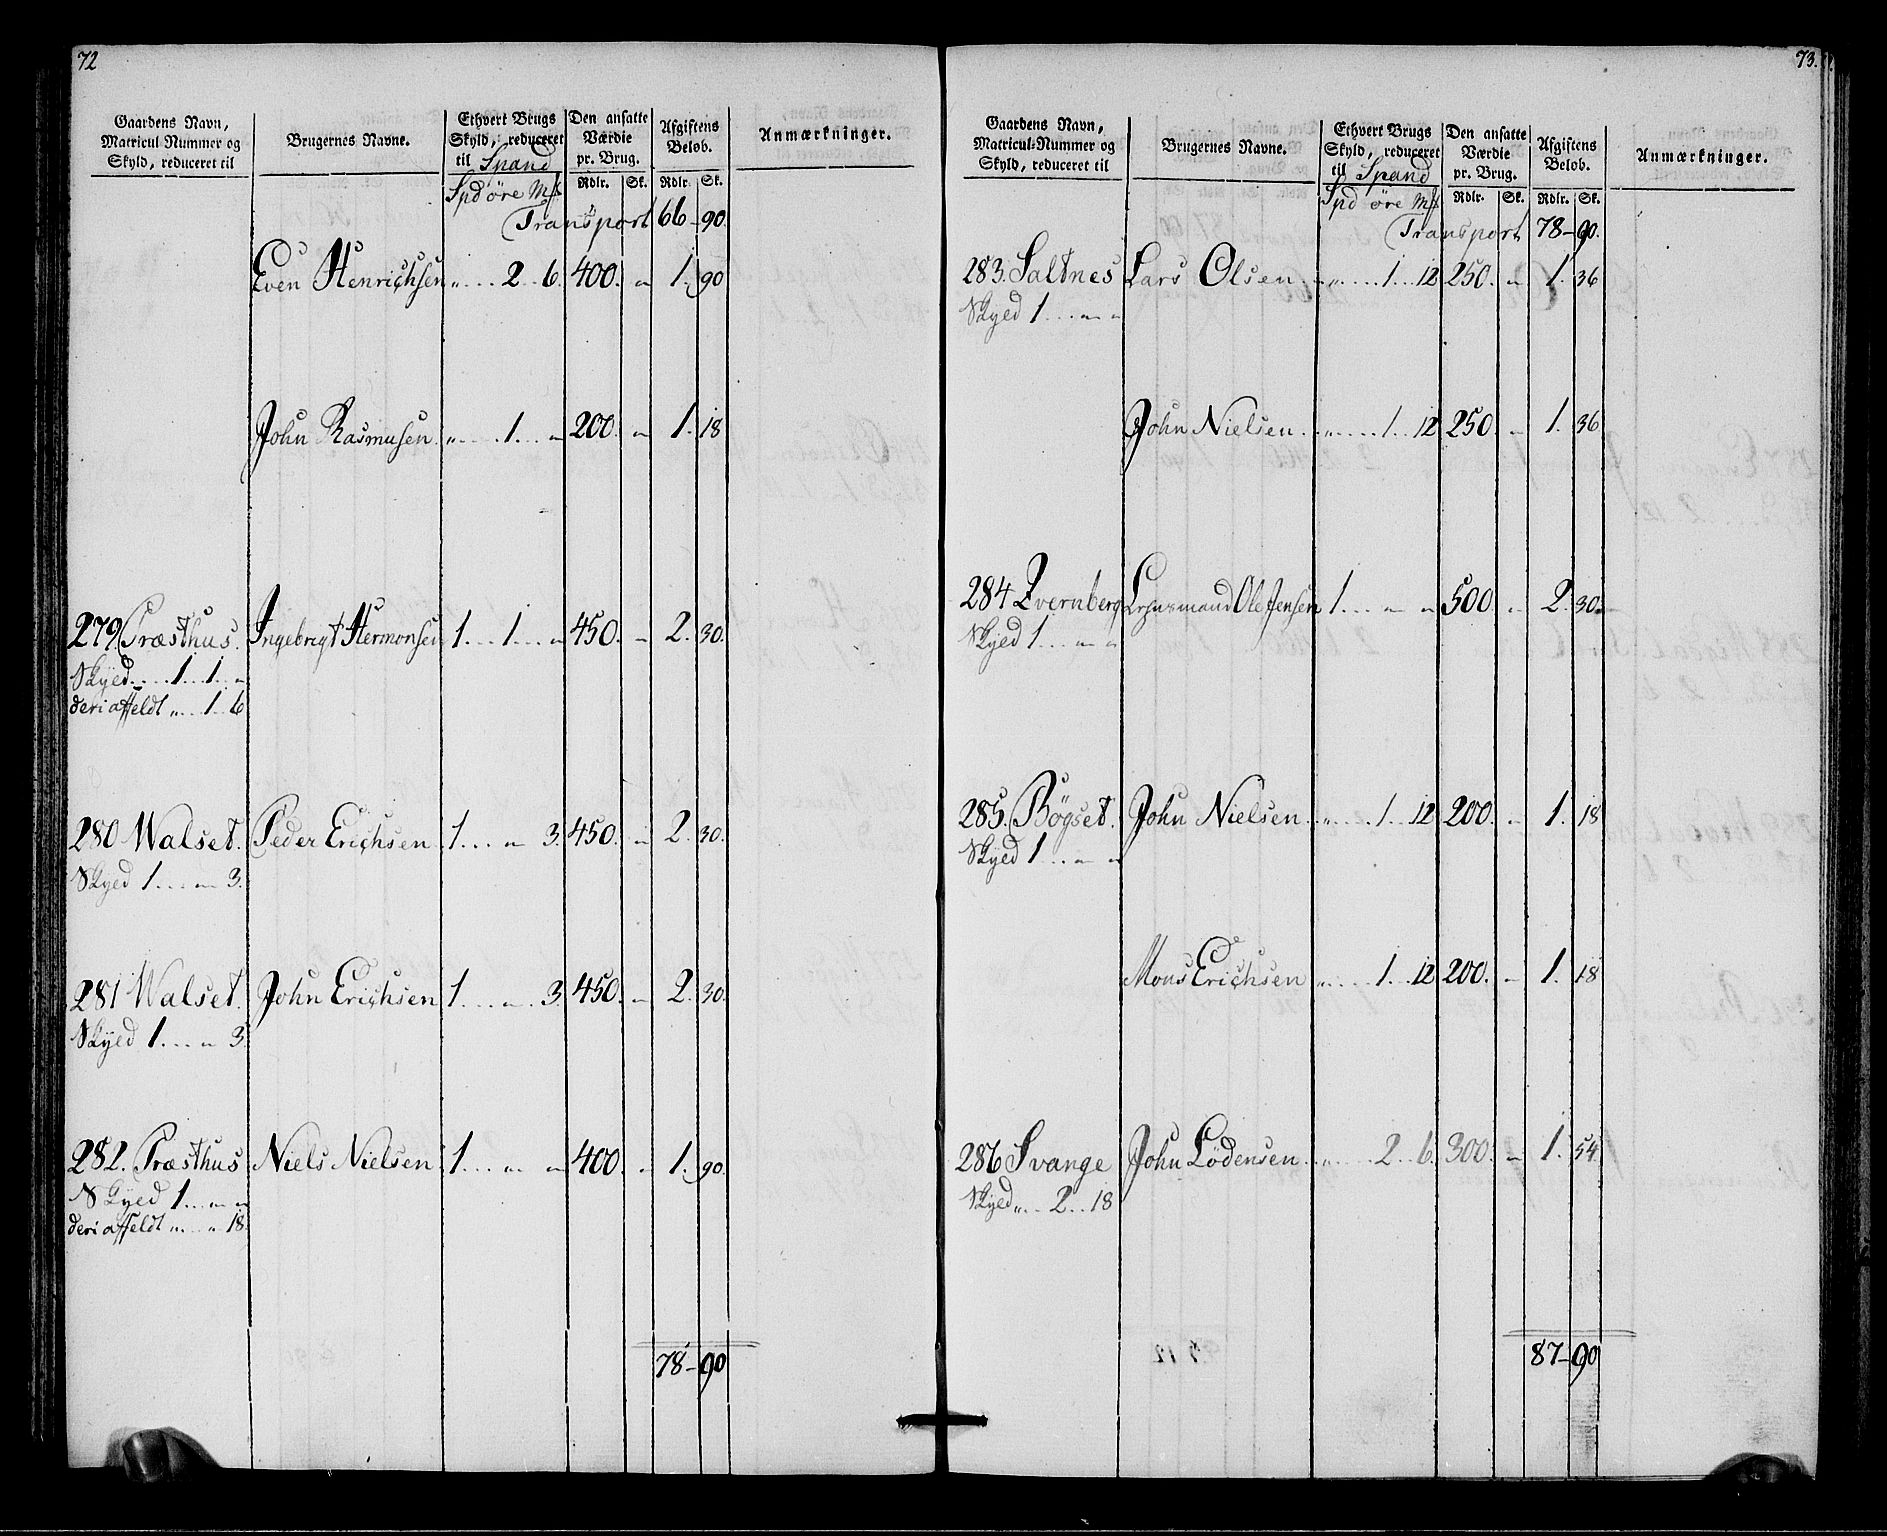 72
Gaardens Navn, Matricul-Nummer og Skyld, reduceret til | Brugernes Navne. | Ethvert Brugs Skyld, reduceret til Spand | Den ansatte Værdie pr. Brug. | Afgiftens Beløb. | Anmærkninger.
Spd øre Mk | Rdlr. | Sk. | Rdlr. | Sk.
Transport 66 - 90.
Even Henrichsen „ .... 2 .. 6. 400. „ 1. 90
John Rasmusen „ .... 1 ... „ 200. „ 1. 18
279. Præsthus. Ingebrigt Hermonsen 1 ... 1 ... „ 450. „ 2. 30.
Skyed .... 1 .. 1 .. „
deri affeldt „ ... 1 .. 6
280 Walset. Peder Erichsen 1 ... „ 3. 450. „ 2. 30.
Skyed 1 ... „ 3.
281 Walset. John Erichsen 1 ... „ 3. 450. „ 2. 30.
Skyed 1 ... „ 3
282. Præsthus Niels Nielsen 1 ... „ „ 400. „ 1. 90.
Skyed 1 ... „ „
deri affeldt „ ... „ 18.
78 - 90
73.
Gaardens Navn, Matricul-Nummer og Skyld, reduceret til | Brugernes Navne. | Ethvert Brugs Skyld, reduceret til Spand | Den ansatte Værdie pr. Brug. | Afgiftens Beløb. | Anmærkninger.
Spd øre Mk | Rdlr. | Sk. | Rdlr. | Sk.
Transport 78 - 90.
283. Saltnes Lars Olsen „ ... 1 .. 12 250. „ 1. 36
Skyed 1 ... „ „
John Nielsen „ .... 1 .. 12 250. „ 1. 36
284 Qvernberg Lehnsmand Ole Jensen 1 ... „ „ 500. „ 2. 30.
Skyed 1 ... „ „
285. Bøgset. John Nielsen „ ... 1 .. 12 200. „ 1. 18
Skyed 1 ... „ „
Mons Erichsen „ ... 1 .. 12 200. „ 1. 18
286 Svange John Lødensen „ .... 2 .. 6. 300. „ 1. 54.
Skyed „ .. 2 .. 18
87 - 90